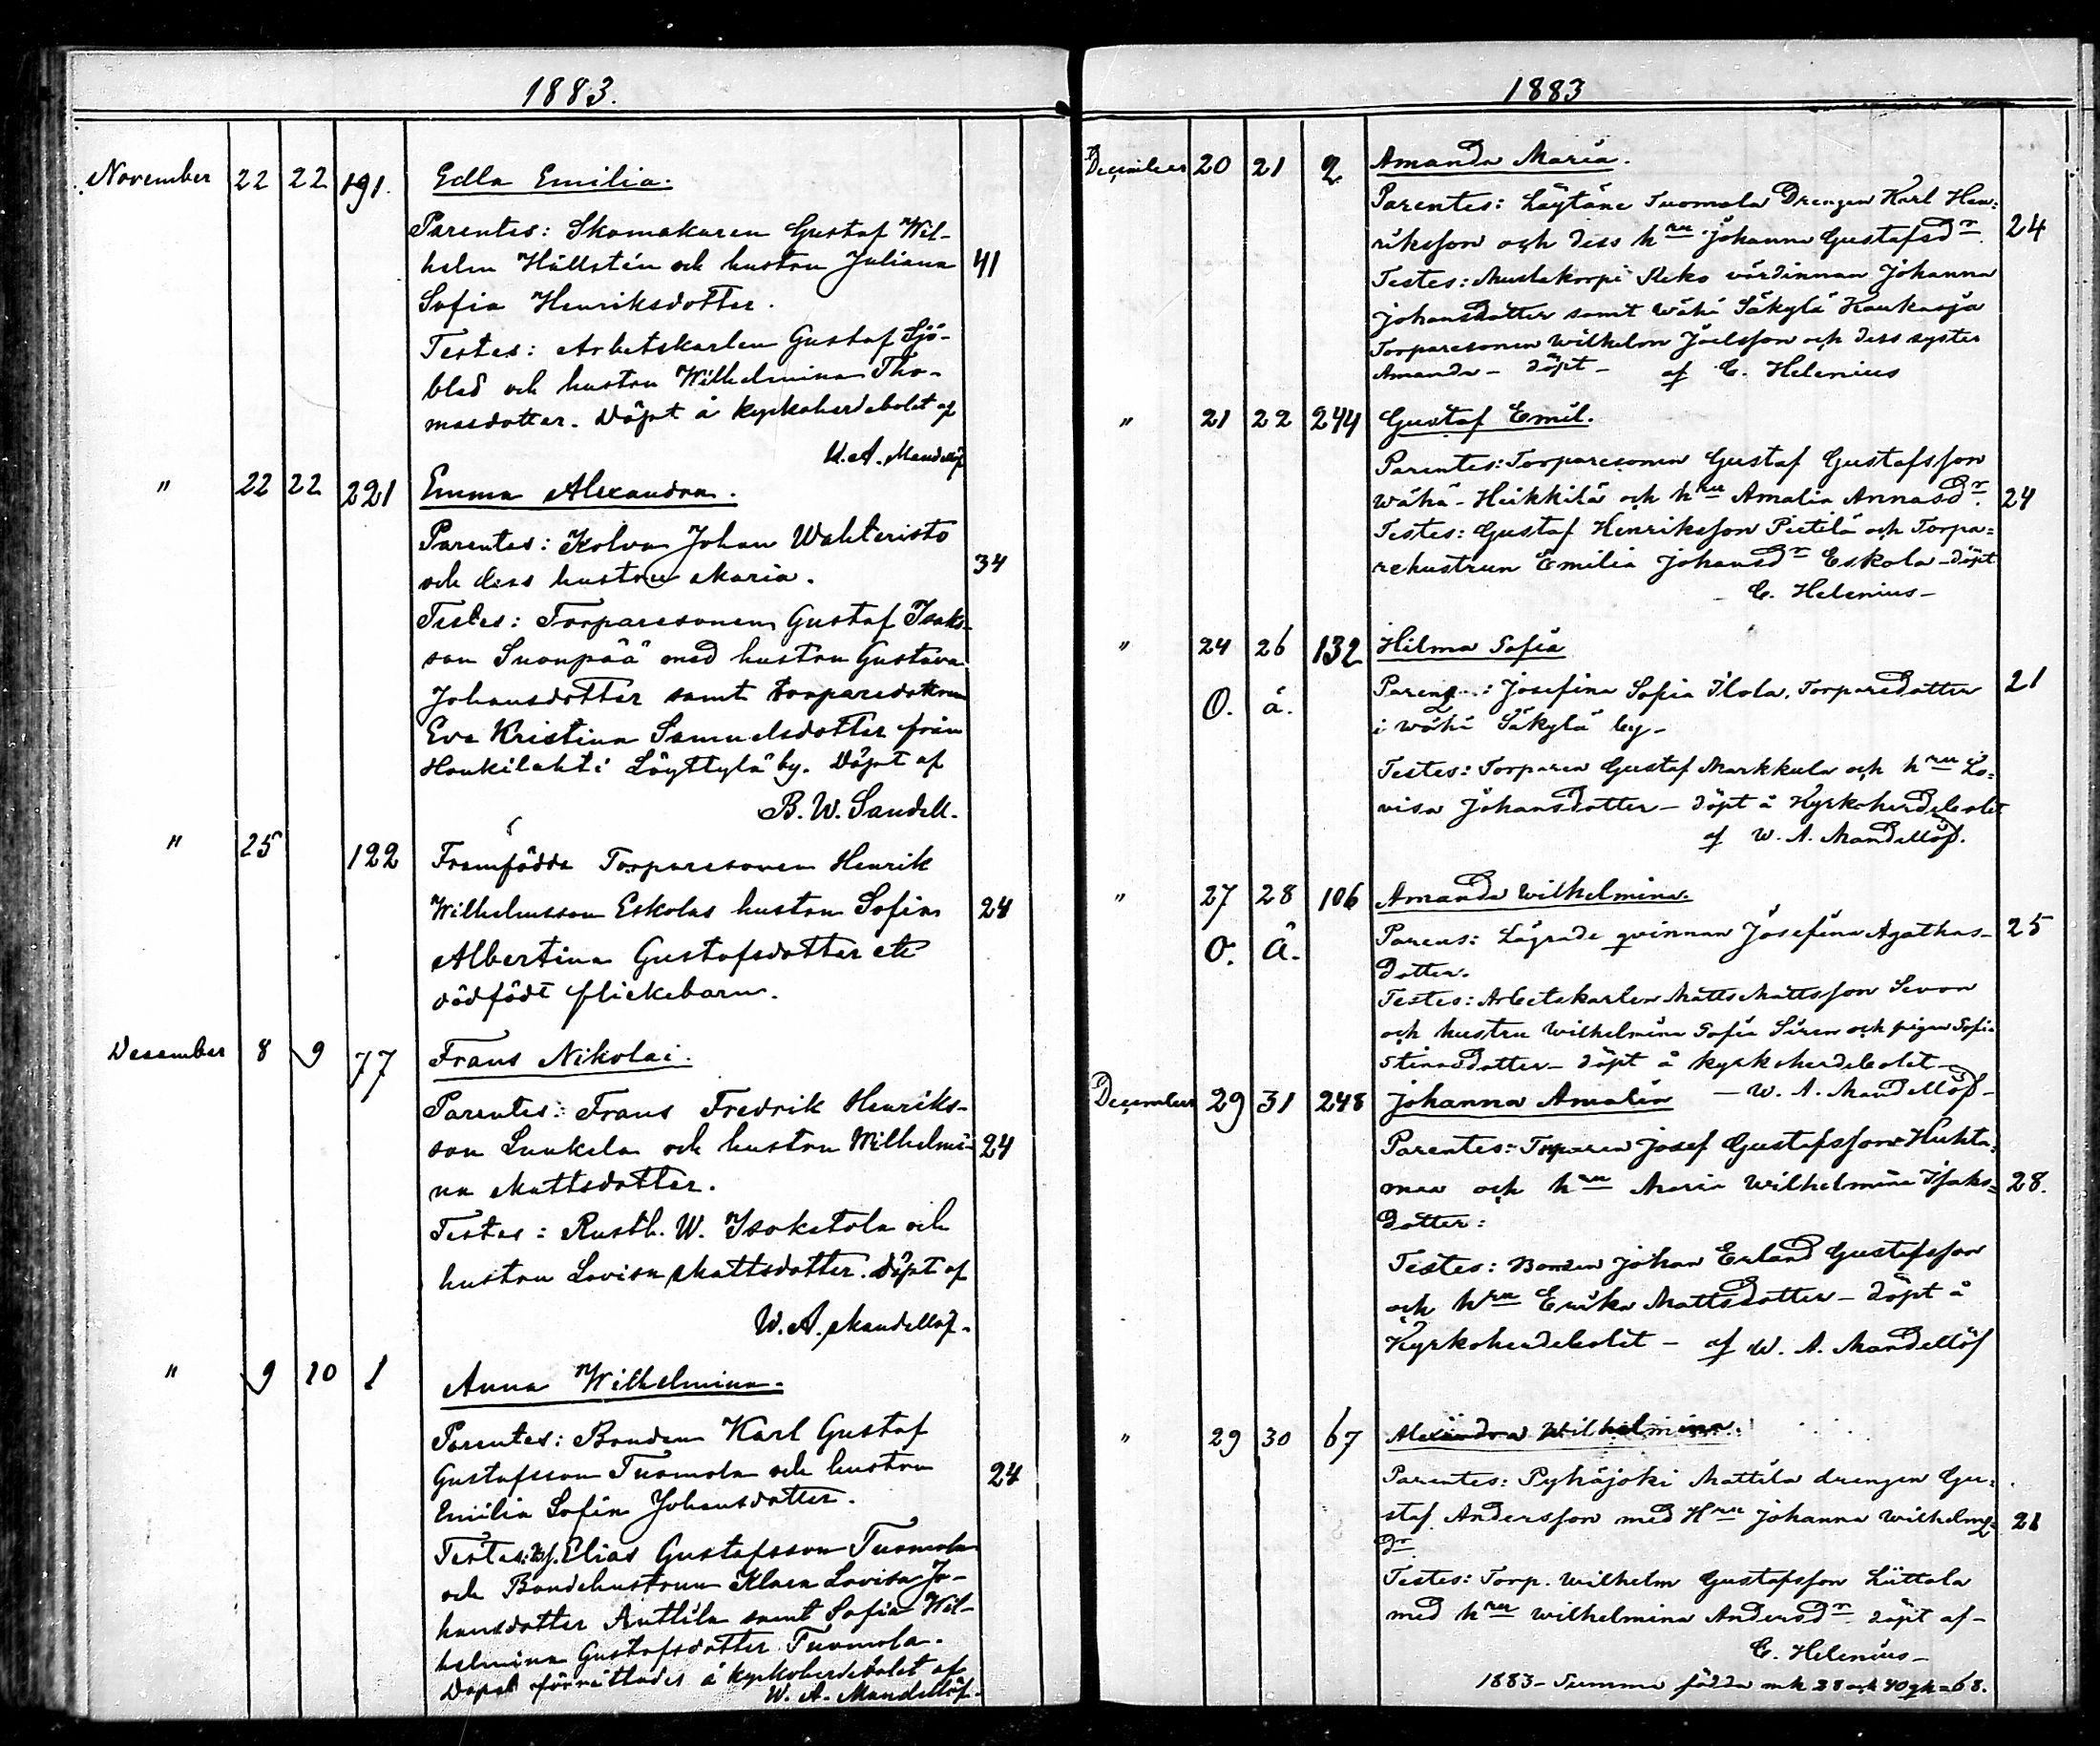 1883.
November 22 22 191. Edla Emilia.
Parentes: Skomakaren Gustaf Wil-
helm Hällstén och hustru Juliana 41
Sofia Henriksdotter.
Testes: Arbetskarlen Gustaf Sjö-
blad och hustru Wilhelmina Tho-
masdotter. Döpt å kyrkoherdebolet af
W. A. Mandellöf
" 22 22 221 Emma Alexandra.
Parentes: Johan Wahteristo
och dess hustru Maria. 34
Testes: Torparesonen Gustaf Isaks-
son Suonpää med hustru Gustava
Johansdotter samt torparedottren
Eva Kristina Samuelsdotter från
Haukilahti Löyttylä by. Döpt af
B. W. Sandell.
" 25 122 Framfödde Torparesonen Henrik
Wilhelmsson Eskolas hustru Sofia 24
Albertina Gustafsdotter ett
dödfödt flickebarn.
December 8 9 77 Frans Nikolai.
Parentes: Frans Fredrik Henriks-
son Lunkela och hustru Wilhelmi- 24
na Mattsdotter.
Testes: Rusth. W. Isoketola och
hustru Lovisa Mattsdotter. Döpt af
W. A. Mandellöf.
" 9 10 1 Anna Wilhelmina.
Parentes: Bonden Karl Gustaf
Gustafsson Tuomola och hustru 24
Emilia Sofia Johansdotter.
Testes: Elias Gustafsson Tuomola
och Bondehustrun Klara Lovisa Jo-
hansdotter Anttila samt Sofia Wil-
helmina Gustafsdotter Tuomola.
Dopet förrättades å kyrkoherdebolet af
W. A. Mandellöf.
1883
December 20 21 2 Amanda Maria.
Parentes: Tuomola Drengen Karl Hen=
riksson och dess hru Johanna Gustafsdr. 24
Testes: värdinnan Johanna
Johansdotter samt Wähä Säkylä Kaukasja
Torparesonen Wilhelm Joelsson och dess syster
Amanda - döpt - af E. Helenius
" 21 22 244 Gustaf Emil.
Parentes: Torparesonen Gustaf Gustafsson
Wähä-Heikkilä och hru Amalia Annasdr. 24
Testes: Gustaf Henriksson Pietilä och Torpa=
rehustrun Emilia Johansdr Eskola - döpt
E. Helenius -
" 24 26 132 Hilma Sofia
O. ä. Josefina Sofia Ilola, Torparedotter 21
i Wähä Säkylä by -
Testes: Torparen Gustaf Markkula och hru Lo=
visa Johansdotter - döpt å Kyrkoherdebolet
af W. A. Mandellöf.
" 27 28 106 Amanda Wilhelmina.
O. Ä. Parens: Lägrade qvinnan Josefina Agathas- 25
dotter.
Testes: Arbetskarlen Matts Mattsson Sevon
och hustru Wilhelmina Sofia Siren och pigan Sofia
Stinasdotter - döpt å kyrkoherdebolet -
- W. A. Mandellöf -
December 29 31 248 Johanna Amalia
Parentes: Torparen Josef Gustafsson Huhta=
maa och hru Maria Wilhelmina Isaks= 28.
dotter:
Testes: Bonden Johan Erland Gustafsson
och hru Erika Mattsdotter - döpt å
Kyrkoherdebolet - af W. A. Mandellöf
" 29 30 67 Alexandra Wilhelmina.
Parentes: Pyhäjoki Mattila drengen Gu=
staf Andersson med Hru Johanna Wilhelms= 21
dr.
Testes: Torp. Wilhelm Gustafsson Liittola
med hru Wilhelmina Andersdr döpt af -
E. Helenius -
1883 - Summa födda mk 28 och 40 qk = 68.